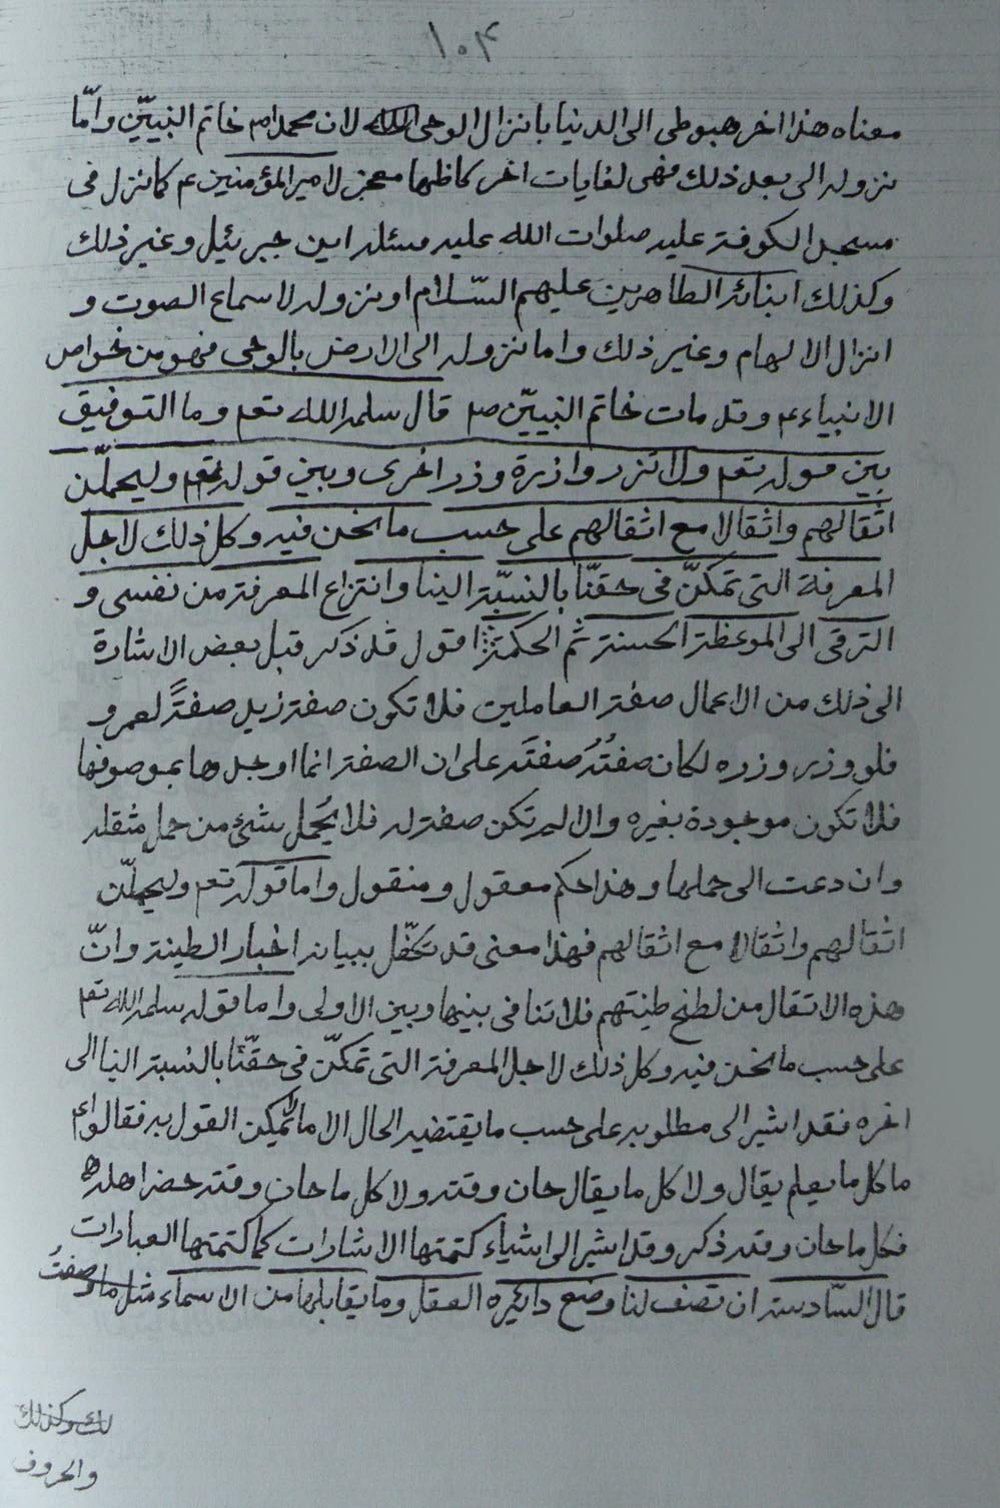 ١٠٤
معناه هذا اخر هبوطى الى الدنيا بانزال الوحى لان محمدا ص خاتم النبيّين وامّا
نزوله الى بعد ذلك فهى لغايات اخر كاظهار معجز لامير المؤمنين ع كما نزل فى
مسجد الكوفة عليه صلوات الله عليه مسئلة اين جبرئيل وغير ذلك
وكذلك ابنائه الطاهرين عليهم السّلام او نزوله لاسماع الصوت و
انزال الالهام وغير ذلك واما نزوله الى الارض بالوحى فهو من خواص
الانبياء ع وقد مات خاتم النبيّين ص قال سلمه الله تعم وما التوفيق
بين قوله تعم ولا تزر وازرة وزر اخرى وبين قوله تعم وليحملّن
اثقالهم واثقالا مع اثقالهم على حسب ما نحن فيه وكل ذلك لاجل
المعرفة التى تمكنّ فى حقنّا بالنسبّة الينا وانتزاع المعرفة من نفسى و
الترقى الى الموعظة الحسنة ثم الحكمة اقول قد ذكر قبل بعض الاشارة
الى ذلك من الاعمال صفة العاملين فلا تكون صفة زيد صفةً لعمرو
فلو وزر وزره لكان صفتُه صفتَه على ان الصفة انما اوجدها بموصوفها
فلا تكون موجودة بغيره والا لم تكن صفة له فلا يُحمل شئ من حمل مثقلة
وان دعت الى حملها وهذا حكم معقول ومنقول واما قوله تعم وليحملّن
اثقالهم واثقالا مع اثقالهم فهذا معنى قد تكفّل ببيانه اخبار الطينة وانّ
هذه الاثقال من لطخ طينتهم فلا تنافى بينها وبين الاولى واما قوله سلمه الله تعم
على حسب ما نحن فيه وكل ذلك لاجل المعرفة التى تمكنّ فى حقنّا بالنسبة الينا الى
اخره فقد اشير الى مطلوبه على حسب ما يقتضيه الحال الا ما لا يمكن القول به فقالوا ع
ما كل ما يعلم يقال ولا كل ما يقال حان وقته ولا كل ما حان وقته حضر اهله
فكل ما حان وقته ذكر وقد اشير الى اشياء كتمتها الاشارات كما كتمتها العبارات
قال السّادسة ان تصف لنا وضع دائيره العقل وما يقابلها من الاسماء مثل ما وصفتُ
لك وكذلك
والحروف